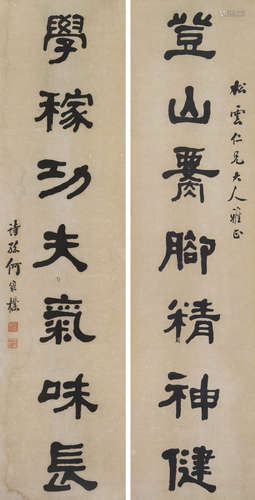 松雲仁兄大人雅正
登山腰腳精神健
學稼功夫氣味長
詩孫何維樸